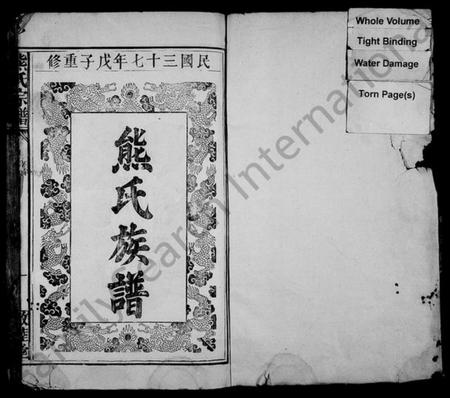 民國三十七年戊子重修
熊氏族譜
熊氏宗譜
Whole Volume
Tight Binding
Water Damage
Torn Page(s)
FamilySearch International